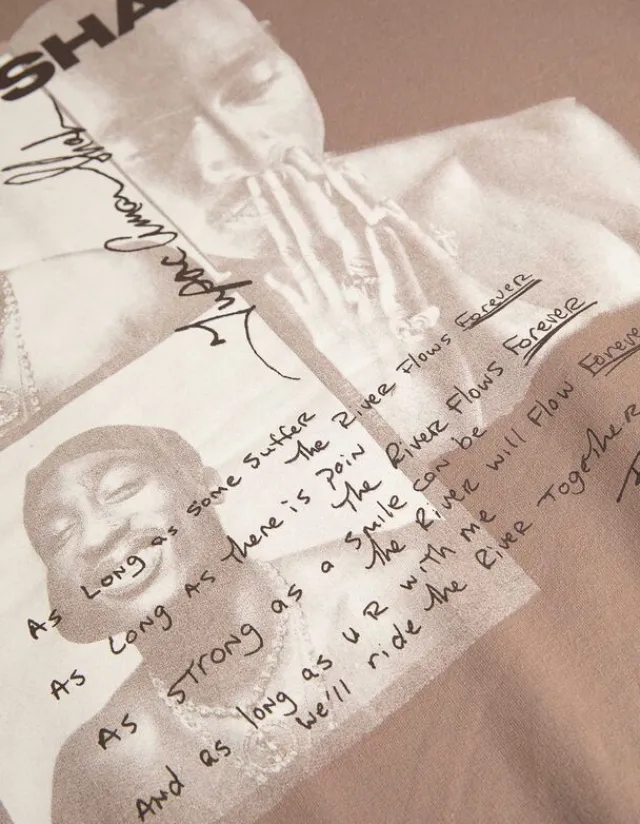 SHA
Tupac Amaru Shakur
As Long as some suffer
the River Flows Forever
As Long As there is Pain
the River Flows Forever
As strong as a smile can be
the River will Flow Forever
And as long as u R with me
we'll ride the River Together